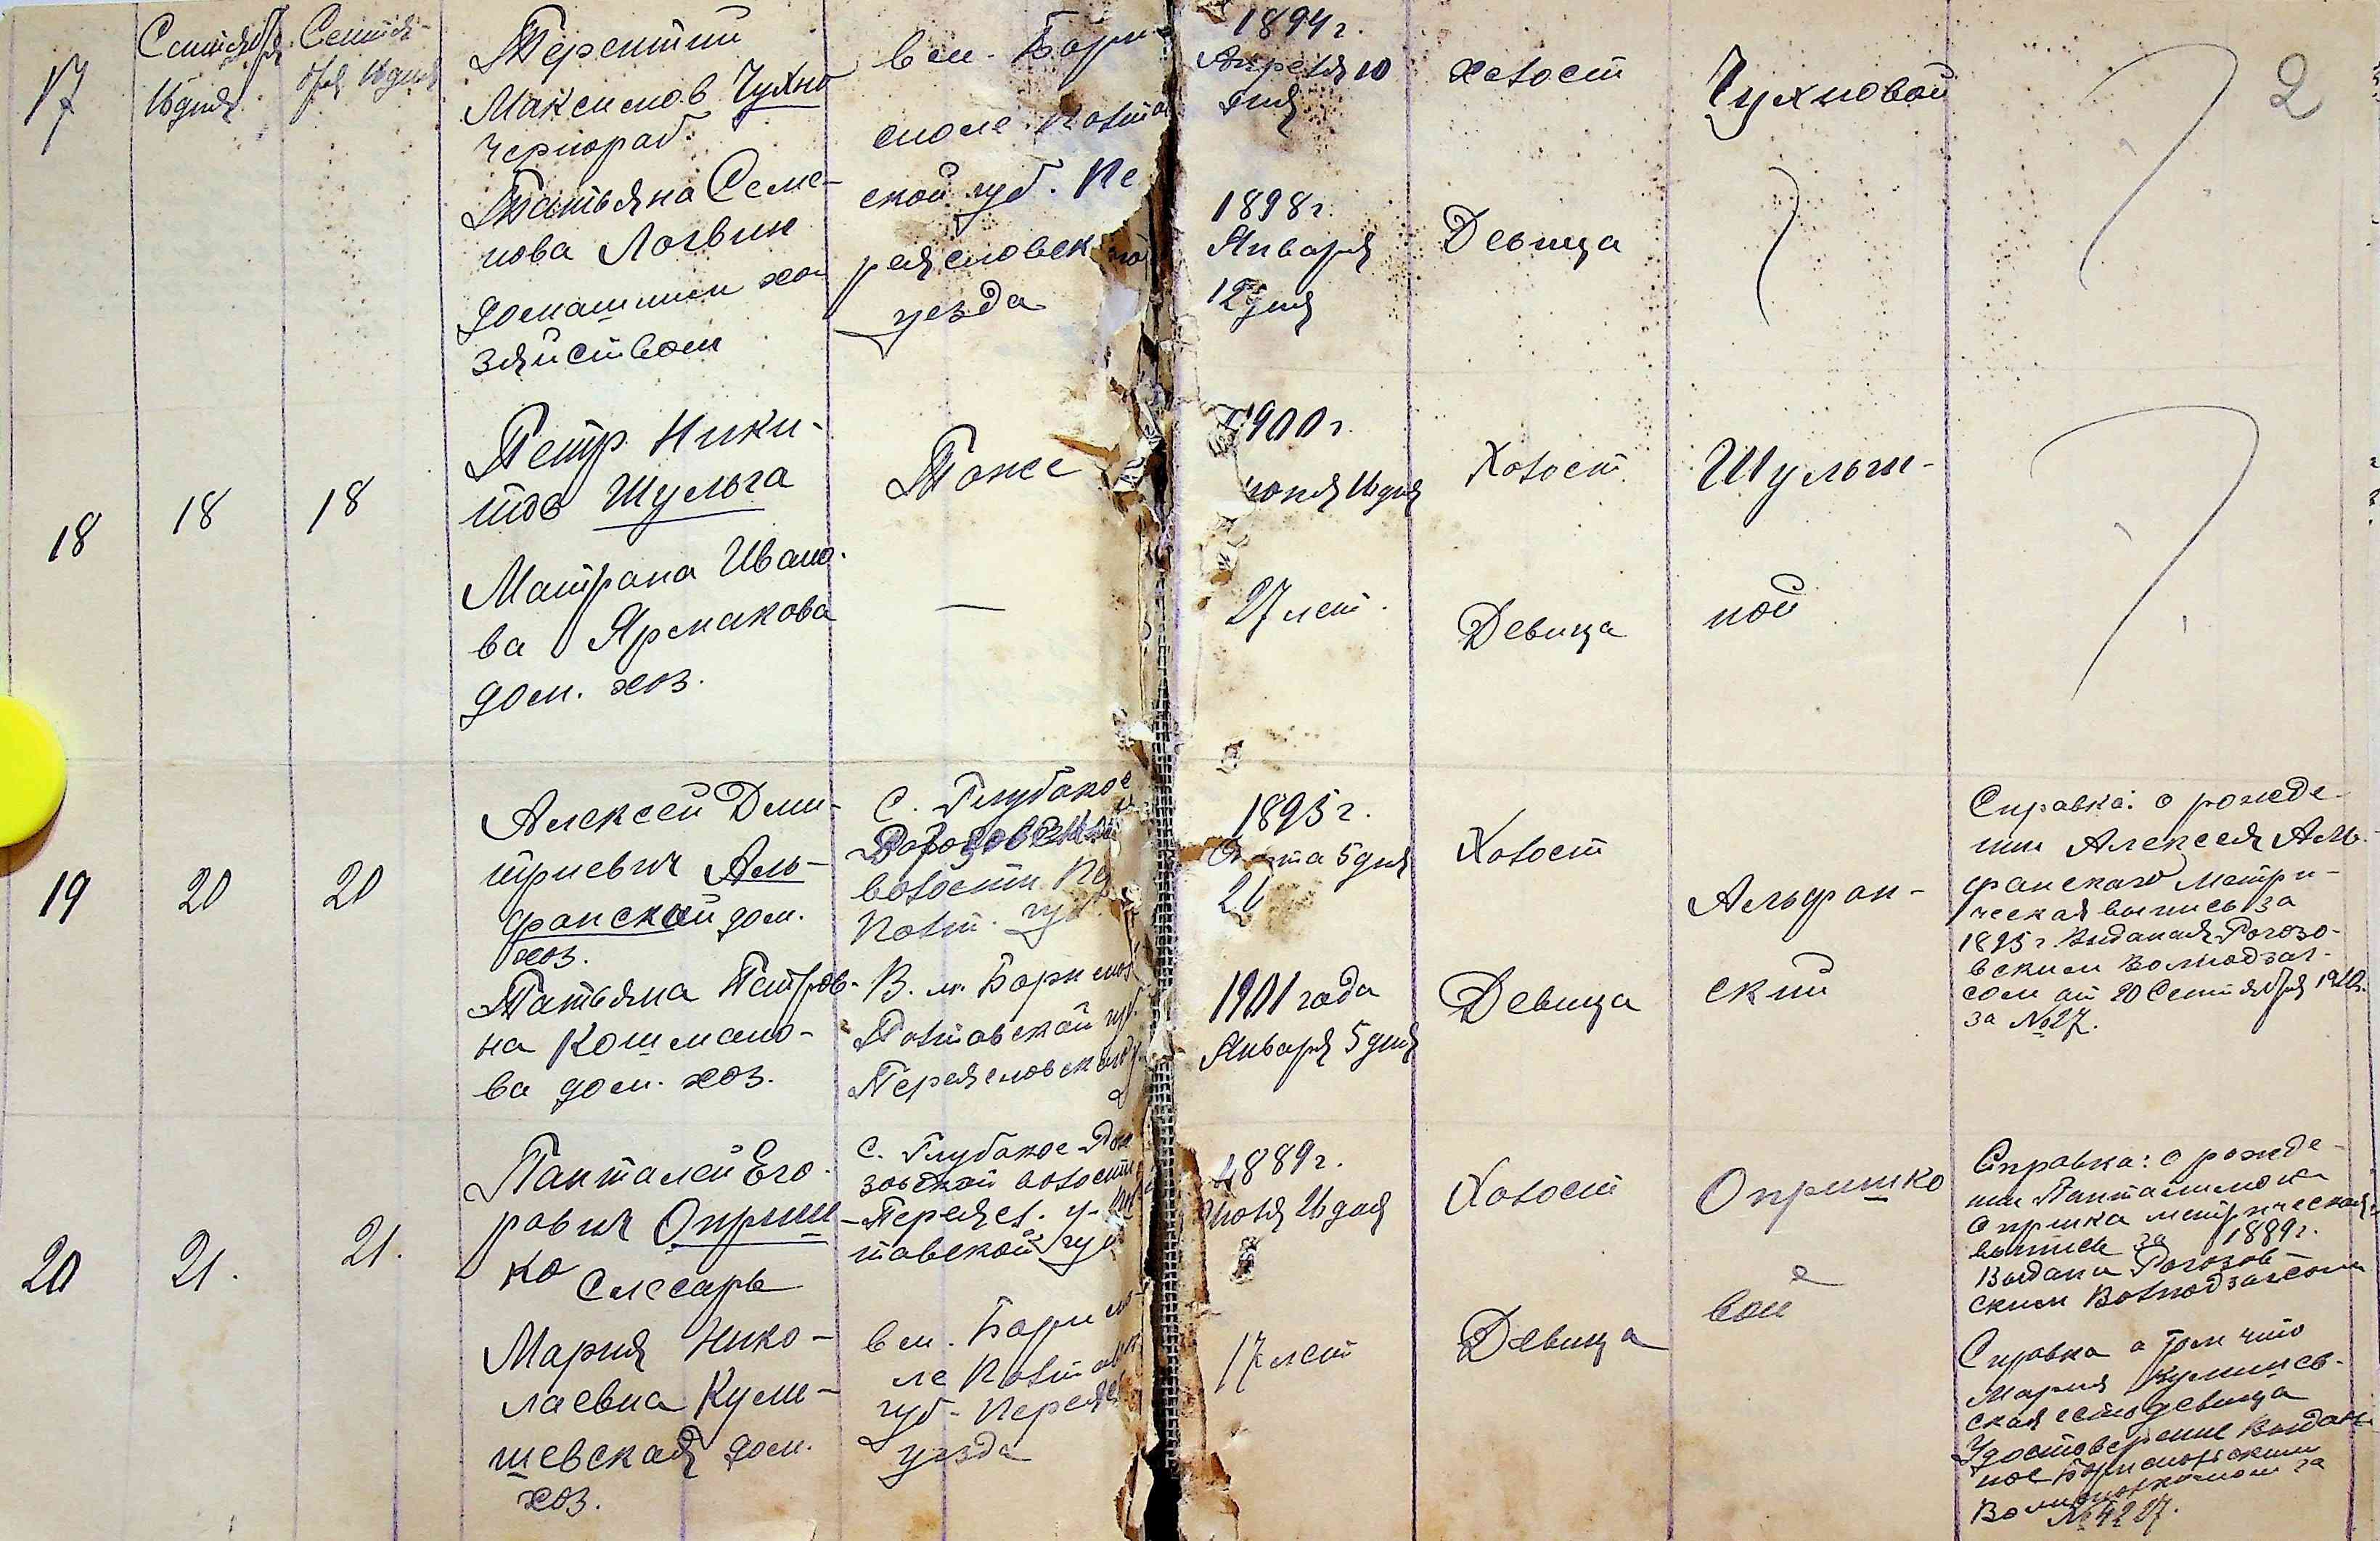 17
Сентября
16 дня
Сентя-
бря 16 дня
Терентий
Максимов Чухно
чернораб.
Татьяна Семе-
нова Логвин
домашним хо-
зяйством
в м. Бори-
споле Полтав
ской губ. Пе
реяславск
уезда
1894 г.
Апреля 10
дня
1898 г.
Января
12 дня
Холост
Девица
Чухновой
2
18
18
18
Петр Ники-
тов Шульга
Матрона Ивано-
ва Ярмакова
дом. хоз.
Тоже
—
1900 г.
16 дня
27 лет.
Холост
Девица
Шульги-
ной
19
20
20
Алексей Дми-
триевич Аль-
фанский дом.
хоз.
Татьяна Петров-
на Кошмано-
ва дом. хоз.
С. Глубокое
волости Пе
Полт. губ
В. м. Борисполе
Полтавской губ.
Переяславского у.
1895 г.
5 дня
1901 года
Января 5 дня
Холост
Девица
Альфан-
ский
Справка: о рожде-
нии Алексея Аль-
фанского Метри-
ческая выпись за
1895 г. Выданая Рогозо-
вским Волподзаг-
сом от 20 Сентября
за № 27.
20
21.
21.
Панталей Его-
рович Оприш-
ко Слесарь
Мария Нико-
лаевна Кули-
шевская дом.
хоз.
С. Глубокое Рого
зовской волости
Переясл. у. Пол
тавской губ
в м. Борисп
ле Полтавск
губ. Переясл
уезда
1889 г.
Июля 26 дня
17 лет
Холост
Девица
Опришко
вой
Справка: о рожде-
нии Пантелимона
Опришка метрическая
выпись за 1889 г.
Выдана Рогозов
ским Волподзагсом
Справка о том что
Мария Кулишев-
ская есть девица
Удостоверение Выдан-
ное Бориспольским
за
№ 4227.